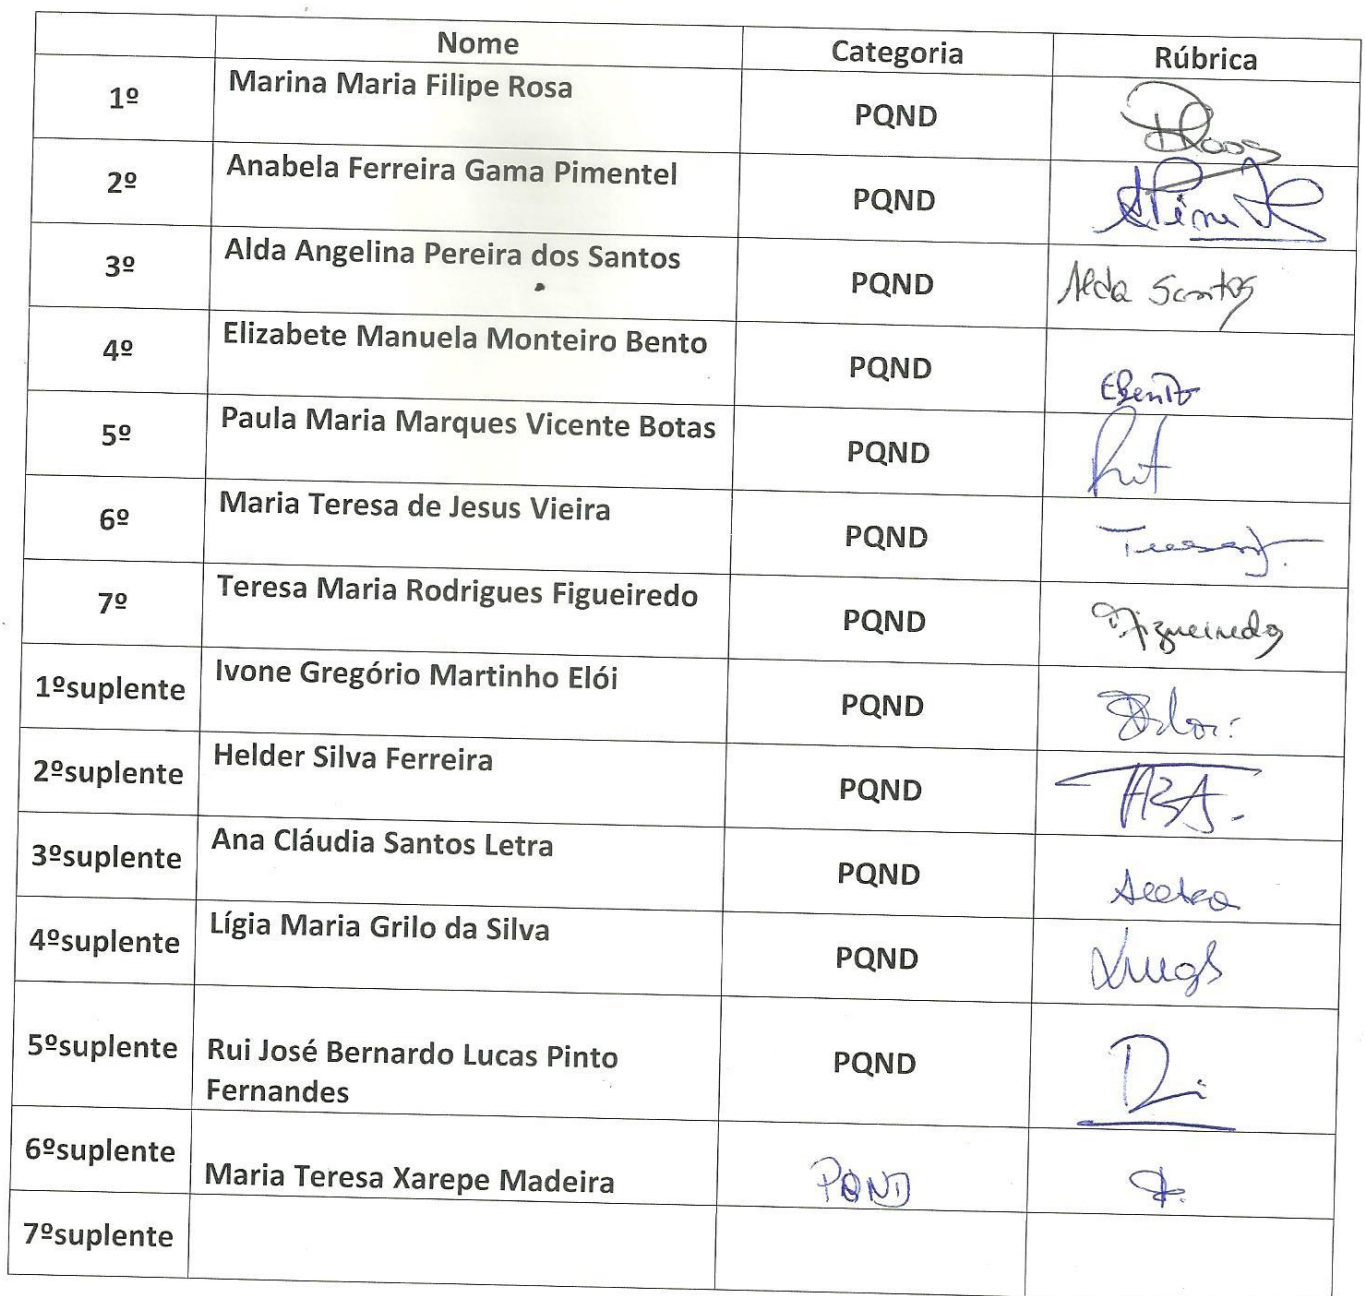 Nome Categoria Rúbrica
1º Marina Maria Filipe Rosa PQND
2º Anabela Ferreira Gama Pimentel PQND
3º Alda Angelina Pereira dos Santos PQND Alda Santos
4º Elizabete Manuela Monteiro Bento PQND EBento
5º Paula Maria Marques Vicente Botas PQND
6º Maria Teresa de Jesus Vieira PQND
7º Teresa Maria Rodrigues Figueiredo PQND TFigueiredo
1ºsuplente Ivone Gregório Martinho Elói PQND
2ºsuplente Helder Silva Ferreira PQND
3ºsuplente Ana Cláudia Santos Letra PQND ALetra
4ºsuplente Lígia Maria Grilo da Silva PQND
5ºsuplente Rui José Bernardo Lucas Pinto PQND
Fernandes
6ºsuplente Maria Teresa Xarepe Madeira PQND
7ºsuplente